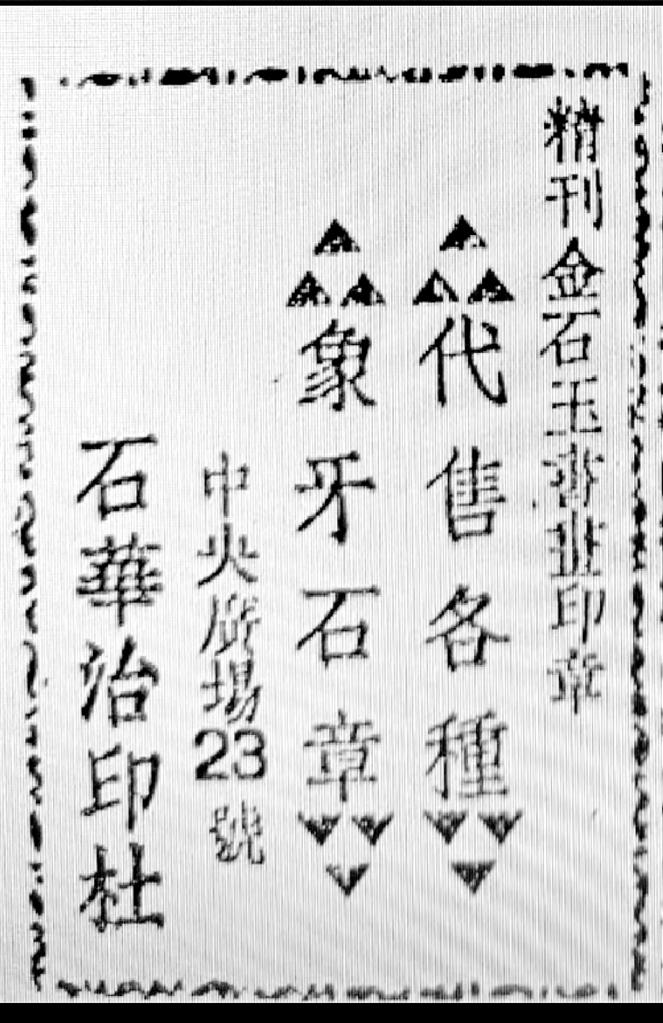 精刊金石玉印章
代售各種
象牙石章
中央場23號
石華治印杜